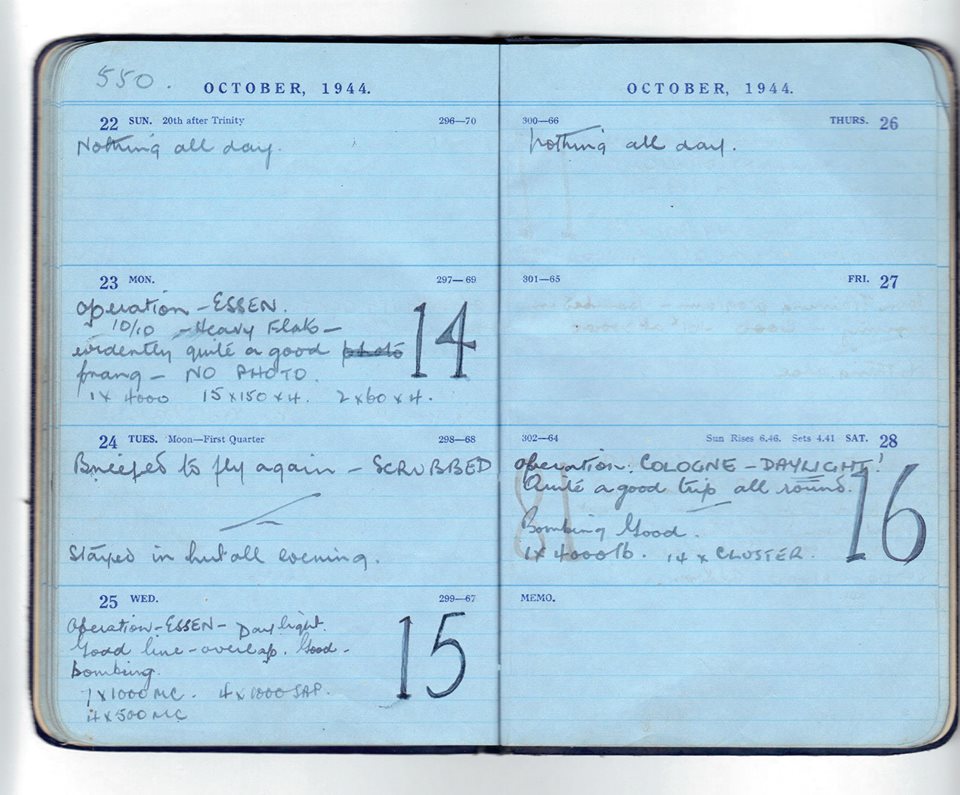 550.
OCTOBER, 1944.
22 SUN. 20th after Trinity 296—70
Nothing all day.
23 MON. 297—69
Operation – ESSEN.
10/10 – Heavy Flak –
evidently quite a good photo
prang – NO PHOTO.
14
1 x 4000 15 x 150 x 4. 2 x 60 x 4.
24 TUES. Moon—First Quarter 298—68
Briefed to fly again – SCRUBBED
Stayed in hut all evening.
25 WED. 299—67
Operation – ESSEN – Daylight.
Good line – overlap. Good –
Bombing.
15
7 x 1000 MC. 4 x 1000 SAP.
4 x 500 MC
OCTOBER, 1944.
300—66 THURS. 26
Nothing all day.
301—65 FRI. 27
302—64 Sun Rises 6.46. Sets 4.41 SAT. 28
Operation. COLOGNE – DAYLIGHT!
Quite a good trip all round.
16
Bombing Good.
1 x 4000 lb. 14 x CLUSTER.
MEMO.